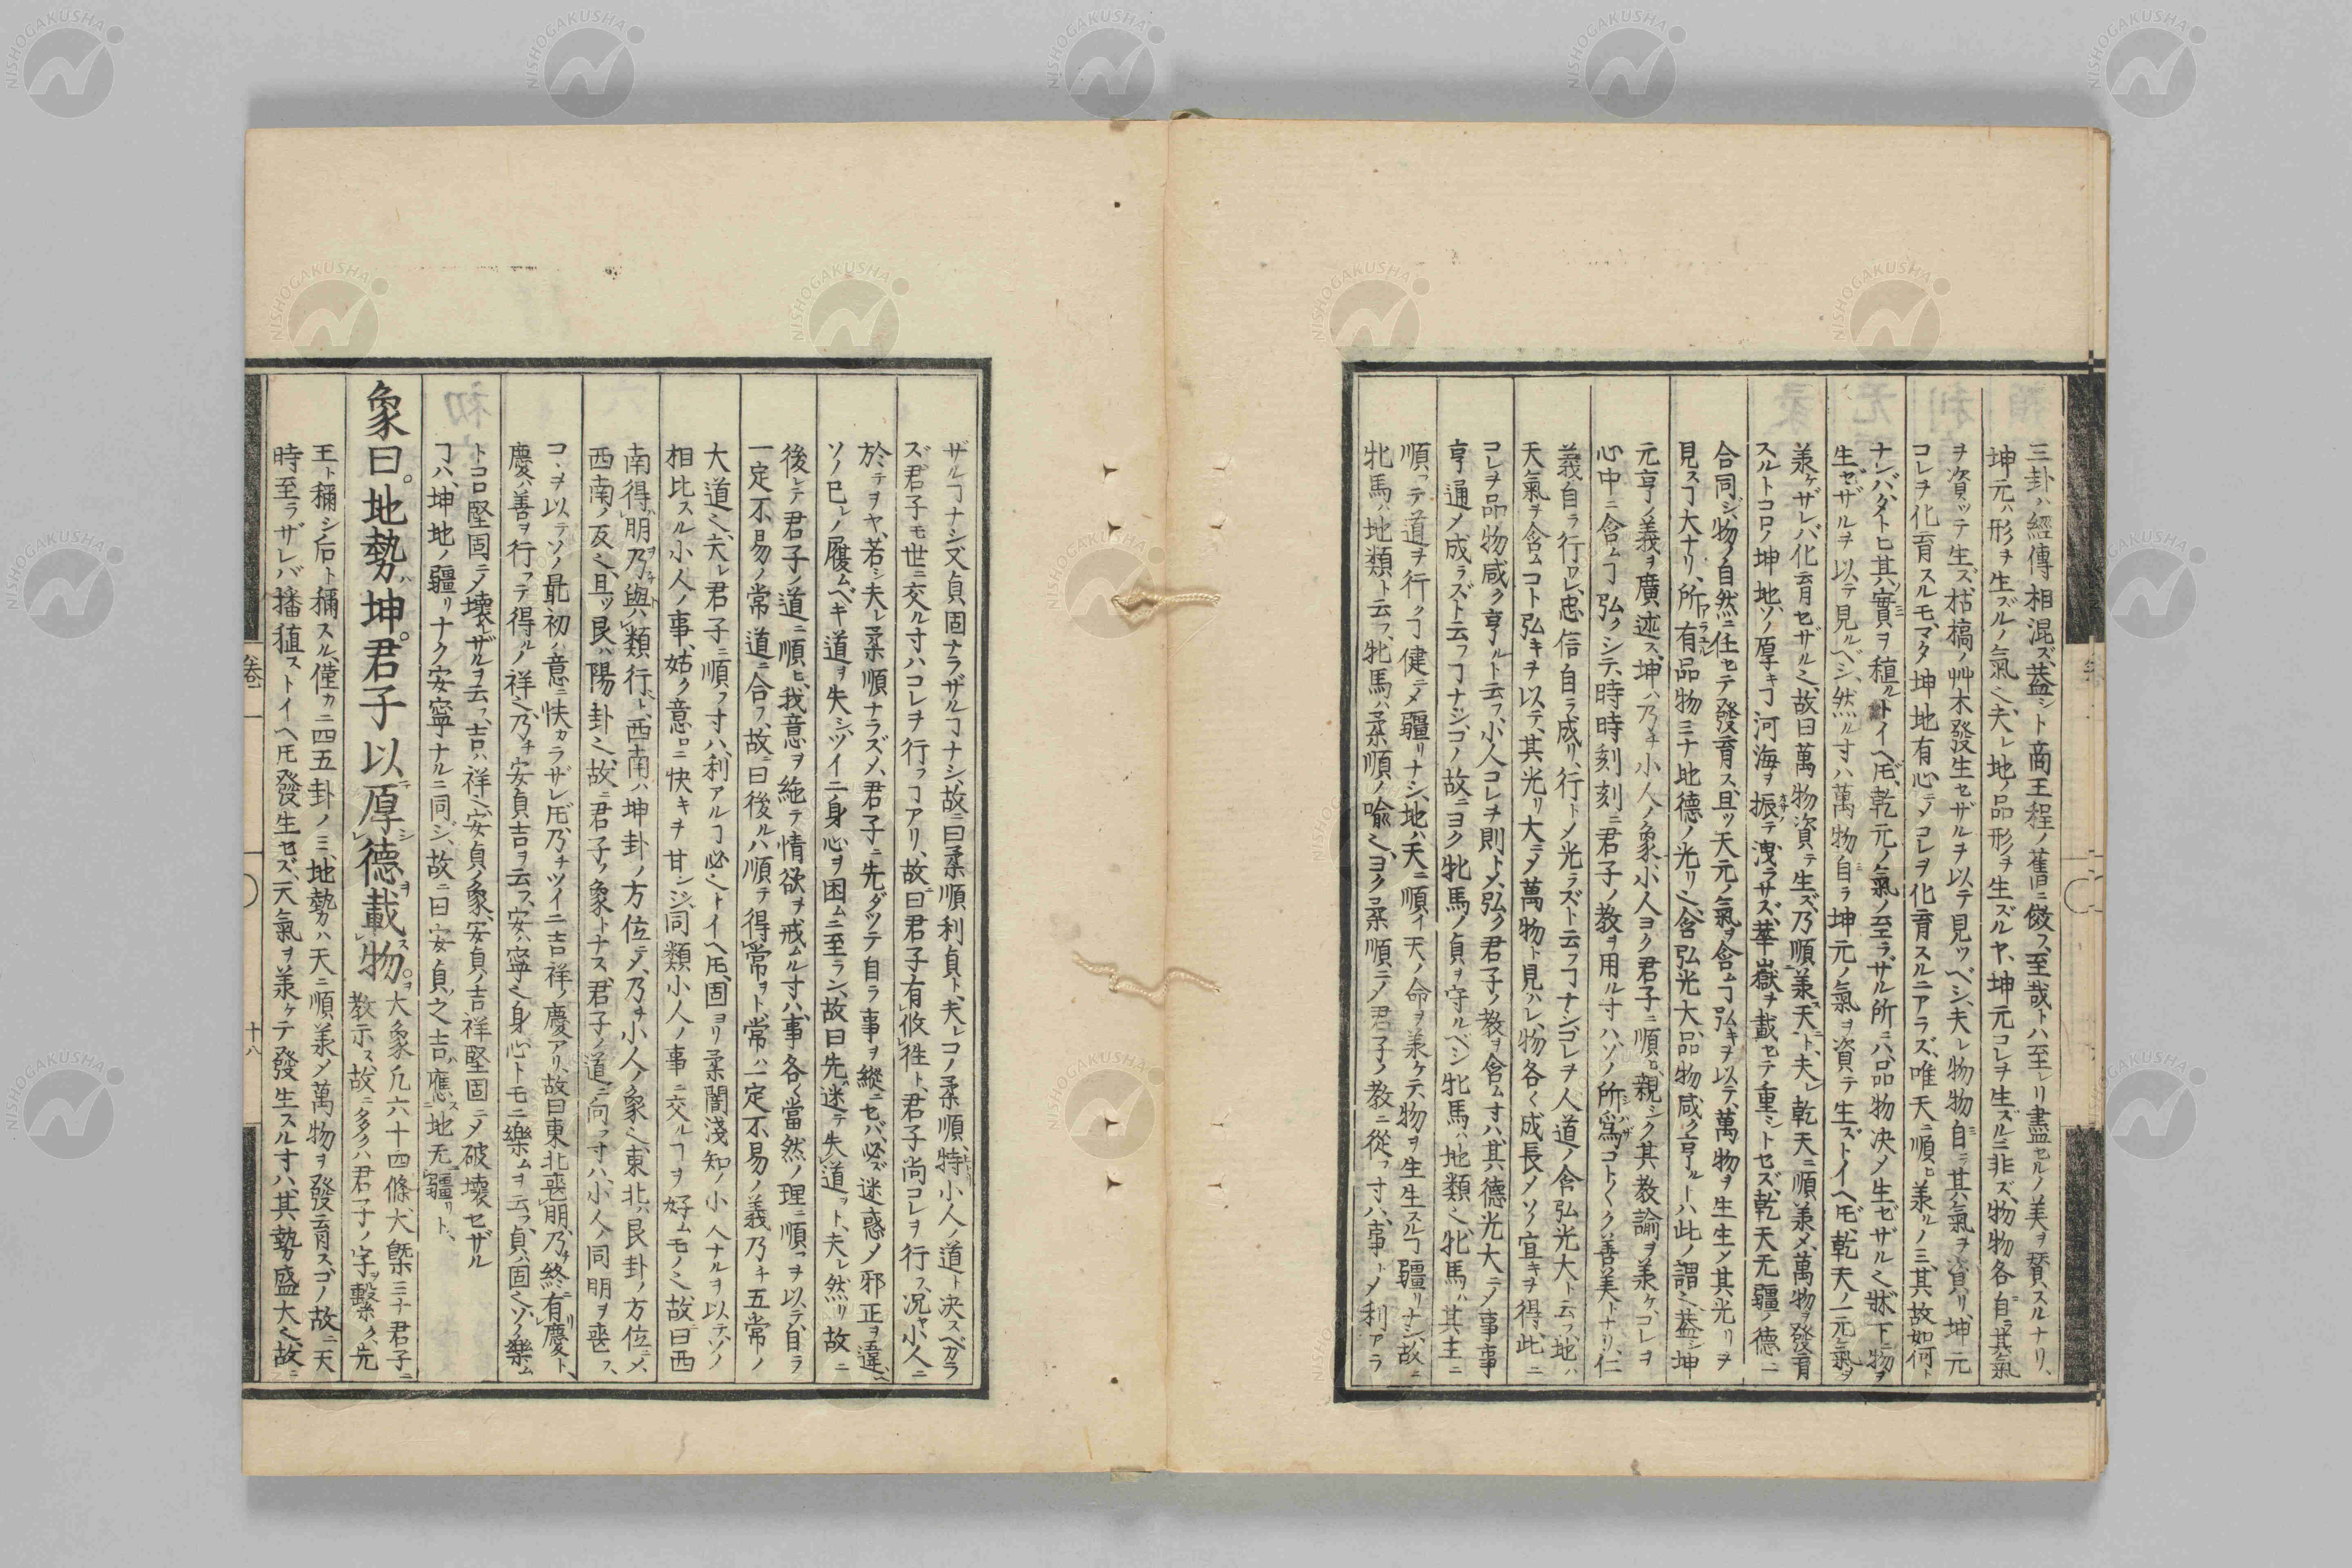 三卦ハ經傳相混ズ、蓋シト商王程ノ舊ニ倣フ、至哉トハ至レリ盡セルノ美ヲ賛スルナリ、
坤元ハ形ヲ生ズルノ氣之、夫レ地ノ品形ヲ生ズルヤ、坤元コレヲ生ズルニ非ズ、物物各自ラ其氣
ヲ資ツテ生ズ、枯槁ノ艸木發生セザルヲ以テ見ツベシ、夫レ物物自ラ其氣ヲ資リ、坤元
コレヲ化育スルモ、マタ坤地有心ニメコレヲ化育スルニアラズ、唯天ニ順ヒ羕ルノミ、其故如何ト
ナンバ、タトヒ其實ヲ稙ルトイヘ𪜈、乾元ノ氣ノ至ラザル所ニハ、品物决メ生ゼザル之、牀下ニ物ヲ
生ゼザルヲ以テ見ルベシ、然ル寸ハ萬物自ラ坤元ノ氣ヲ資テ生ズトイヘ𪜈、乾天ノ一元氣ヲ
羕ケザレバ化育セザル之、故曰萬物資テ生ズ乃順羕天ニト、夫レ乾天ニ順羕メ、萬物ヲ發育
スルトコロノ坤地、ソノ厚キヿ河海ヲ振テ洩ラサズ、華嶽ヲ載セテ重シトセズ、乾天无疆ノ德ニ
合同シ、物ノ自然ニ任セテ發育ス、且ツ天元ノ氣ヲ含ムヿ弘キヲ以テ、萬物ヲ生生メ其光リヲ
見スヿ大ナリ、所有品物ミナ地德ノ光リ之、含弘光大、品物咸ク亨ルトハ此ノ謂之、蓋シ坤
元亨ノ義ヲ廣迹ス、坤ハ乃チ小人ノ象、小人ヨク君子ニ順ヒ親シク其教諭ヲ羕ケ、コレヲ
心中ニ含ムヿ弘クシテ、時時刻刻ニ君子ノ教ヲ用ル寸ハ、ソノ所爲コトヾク善美トナリ、仁
義自ラ行ワレ、忠信自ラ成リ、行トメ光ラズト云フヿナシ、コレヲ人道ノ含弘光大ト云フ、地ハ
天氣ヲ含ムコト弘キヲ以テ、其光リ大ニメ萬物ト見ハレ、物各〻成長メソノ宜キヲ得、此ニ
コレヲ品物咸ク亨ルト云フ、小人コレヲ則トメ、弘ク君子ノ教ヲ含ム寸ハ、其德光大ニメ事事
亨通メ成ラズト云フヿナシ、コノ故ニヨク牝馬ノ貞ヲ守ルベシ、牝馬ハ地類之、牝馬ハ其主ニ
順フテ道ヲ行クヿ健ニメ疆リナシ、地ハ天ニ順イ天ノ命ヲ羕ケテ、物ヲ生生スルヿ疆リナシ、故ニ
牝馬ハ地類ト云フ、牝馬ハ柔順ノ喩之、ヨク柔順ニメ君子ノ教ニ從フ寸ハ、事トメ利アラ
ザルヿナシ、又貞固ナラザルヿナシ、故ニ曰柔順利貞ト、夫レコノ柔順、特小人ノ道ト决スベカラ
ズ、君子モ世ニ交ル寸ハコレヲ行フコアリ、故ニ曰君子有攸徃ト、君子尚コレヲ行フ、况ヤ小人ニ
於テヲヤ、若シ夫レ柔順ナラズメ、君子ニ先ダツテ自ラ事ヲ縱ニセバ、必ズ迷惑メ邪正ヲ違ニ
ソノ巳レノ履ムベキ道ヲ失シ、ツイニ身心ヲ困ムニ至ラン、故曰先迷テ失道ヲト、夫レ然リ故ニ
後レテ君子ノ道ニ順ヒ、我意ヲ絁テ情欲ヲ戒ムル寸ハ、事各〻當然ノ理ニ順フヲ以テ、自ラ
一定不易ノ常道ニ合フ、故曰後ルハ順テ得常ヲト、常ハ一定不易ノ義、乃チ五常ノ
大道之、夫レ君子ニ順フ寸ハ、利アルヿ必之トイヘ𪜈、固ヨリ柔闇淺知ノ小人ナルヲ以テ、ソノ
相比スル小人ノ事、姑ク意ロニ快キヲ甘ンジ、同類小人ノ事ニ交ルヿヲ好ムモノ之、故曰西
南得朋乃與類行ト、西南ハ坤卦ノ方位ニメ、乃チ小人ノ象之、東北ハ艮卦ノ方位ニメ、
西南ノ反之、且ツ艮ハ陽卦之、故ニ君子ノ象トナス、君子ノ道ニ向フ寸ハ、小人ノ同朋ヲ喪フ、
コヽヲ以テソノ最初ハ意ニ快カラザレ𪜈、乃チツイニ吉祥ノ慶アリ、故曰東北喪朋、乃チ終有慶ト、
慶ハ善ヲ行フテ得ルノ祥之、乃チ安貞吉ヲ云フ、安ハ寧之、身心トモニ樂ムヲ云フ、貞ハ固之、ソノ樂ム
トコロ堅固ニメ壞レザルヲ云フ、吉ハ祥之、安貞ノ象、安貞ノ吉祥堅固ニメ破壞セザル
ヿハ、坤地ノ疆リナク安寧ナルニ同ジ、故ニ曰安貞之吉、應ス地无疆リト、
象曰。地勢ハ坤。君子以テ厚シ德ヲ載ス物ヲ。
大象凡六十四條、大槩ミナ君子ニ
教示ス、故ニ多クハ君子ノ字ヲ繫ク、先
王ト稱シ后ト稱スル、僅カニ四五卦ノミ、地勢ハ天ニ順羕メ萬物ヲ發育ス、コノ故ニ天
時至ラザレバ播殖ストイヘ𪜈發生セズ、天氣ヲ羕ケテ發生スル寸ハ、其勢盛大之、故ニ
卷一
十八